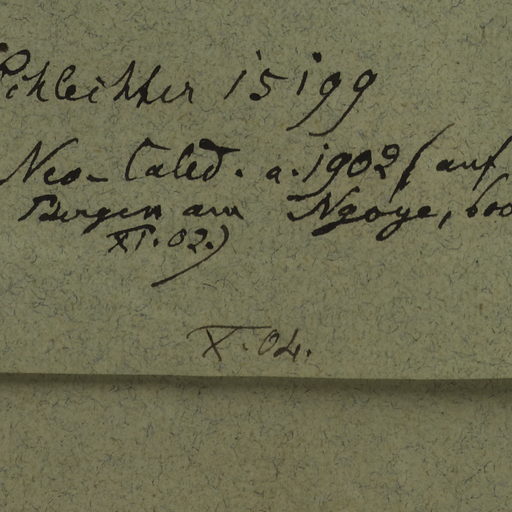 Schlechter 15199
Neo-Caled. a. 1902 (auf
Bergen am Ngoye, 600
XI. 02.)
X. 04.